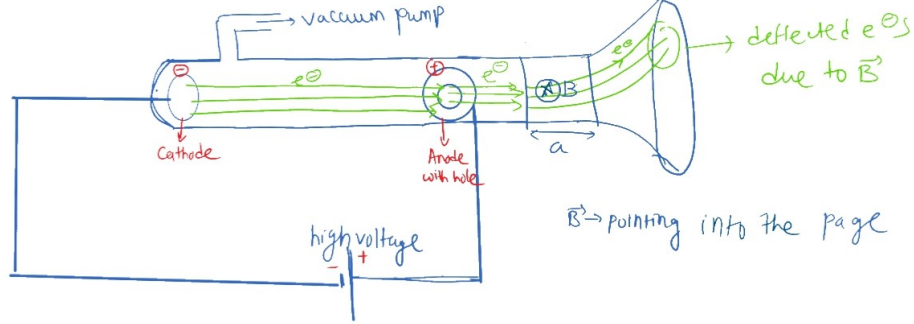 vacuum pump
deflected e⊖s
due to B⃗
e⊖
⊖
e⊖
⊕
e⊖
⊗ B
a
Cathode
Anode
with hole
B⃗→pointing into the page
high voltage
- +